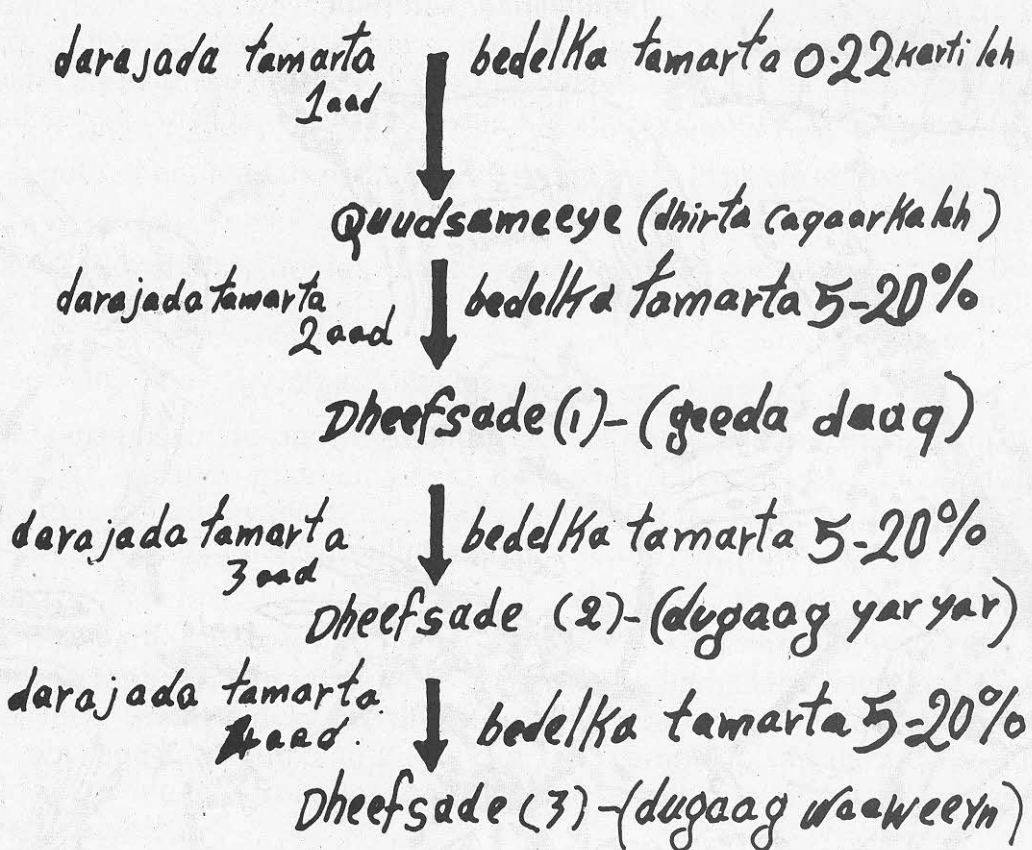 darajada tamarta bedelka tamarta 0.22 karti leh
1aad
Quudsameeye (dhirta cagaarka leh)
darajada tamarta bedelka tamarta 5-20%
2aad
Dheefsade (1)- (geeda daaq)
darajada tamarta bedelka tamarta 5-20%
3aad
Dheefsade (2)-(dugaag yar yar)
darajada tamarta bedelka tamarta 5-20%
4aad.
Dheefsade (3)-(dugaag waaweeyn)